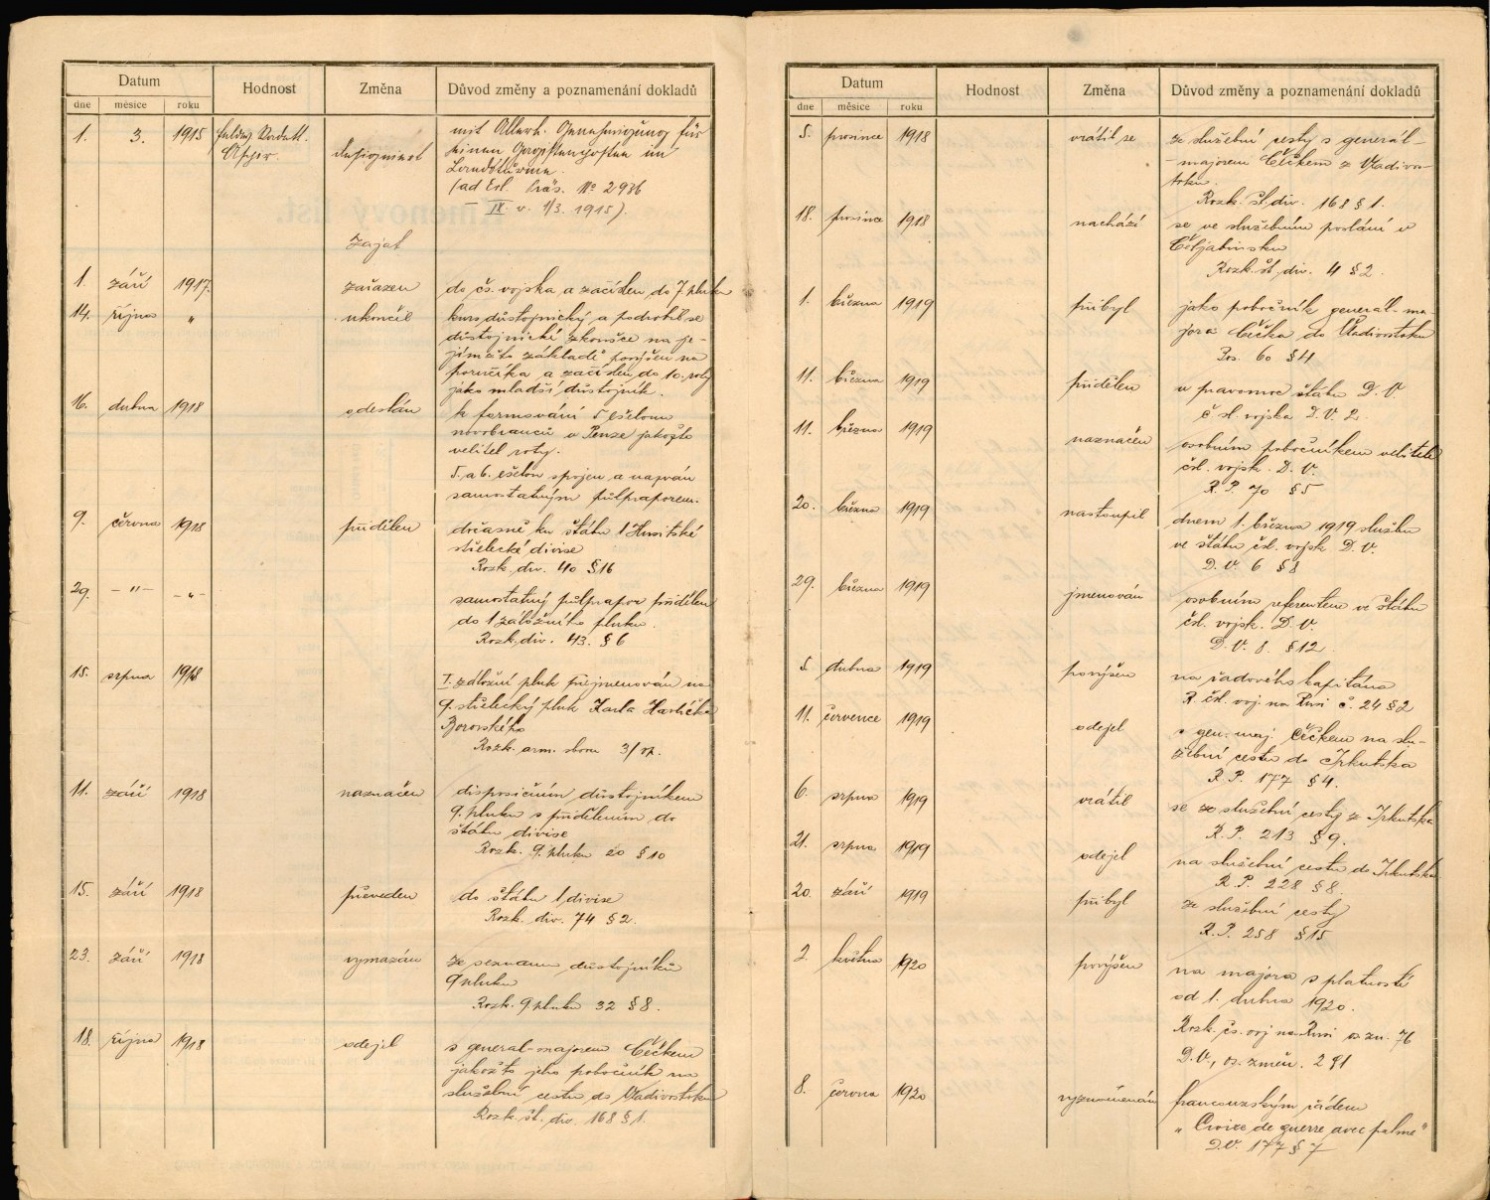 Datum
Hodnost
Změna
Důvod změny a poznamenání dokladů
dne měsíce roku
1. 3. 1915
mit Allerh. Genehmigung für
einen
im
(ad Erl. Präs. No 2936
– II v. 1/3. 1915).
zajat
1. září 1917. zařazen do čs. vojska a začíslen do 7 pluku
14. října " ukončil kurs důstojnický a podrobil se
důstojnické zkoušce na je-
jímžto základě povýšen na
poručíka a začíslen do 10. roty
jako mladší důstojník.
16. dubna 1918 odeslán k formování 5 ešelonu
novobranců v Penze jakožto
velitel roty.
5. a 6. ešelon spojen a nazván
samostatným půlpraporem.
9. června 1918 přidělen dočasně ku štábu 1 Husitské
střelecké divise
Rozk. div. 40 § 16
29. – " – – " – samostatný půlprapor přidělen
do 1 záložního pluku.
Rozk. div. 43. § 6
15. srpna 1918 I. záložní pluk přejmenován na
9. střelecký pluk Karla Havlíčka
Borovského
Rozk. arm. sboru 3/
11. září 1918 naznačen disposičním důstojníkem
9. pluku s přidělením do
štábu divise
Rozk. 9. pluku 20 § 10
15. září 1918 převeden do štábu 1 divise
Rozk. div. 74 § 2.
23. září 1918 vymazán ze seznamu důstojníků
9 pluku
Rozk. 9 pluku 32 § 8.
18. října 1918 odejel s generál-majorem Čečkem
jakožto jeho pobočník na
služební cestu do Vladivostoku
Rozk. šl. div. 168 § 1.
Datum
Hodnost
Změna
Důvod změny a poznamenání dokladů
dne měsíce roku
5. prosince 1918 vrátil se ze služební cesty s generál-
-majorem Čečkem z Vladivo-
stoku.
Rozk. šl. div. 168 § 1.
18. prosince 1918 nachází se ve služebním poslání v
Čeljabinsku
Rozk. šl. div. 4 § 2.
1. března 1919 přibyl jako pobočník generál-ma-
jora Čečka do Vladivostoku
60 § 4
11. března 1919 přidělen v pravomoc štábu D. V.
č sl. vojska D. V. 2.
11. března 1919 naznačen osobním pobočníkem velitele
čsl. vojsk. D. V.
R. P. 70 § 5
20. března 1919 nastoupil dnem 1. března 1919 službu
ve štábu čsl. vojsk D. V.
D. V. 6 § 8
29. března 1919 jmenován osobním referentem ve štábu
čsl. vojsk. D. V.
D. V. 8. § 12.
5. dubna 1919 povýšen na řadového kapitána
R. čsl. voj. na Rusi č. 24 § 2
11. července 1919 odejel s gen. maj. Čečkem na slu-
žební cestu do Irkutska
R. P. 177 § 4.
6. srpna 1919 vrátil se ze služební cesty z Irkutska
R. P. 213 § 9.
21. srpna 1919 odejel na služební cestu do Irkutska
R. P. 228 § 8.
20. září 1919 přibyl ze služební cesty
R. P. 258 § 15
2. května 1920 povýšen na majora s platností
od 1. dubna 1920.
Rozk. čs. voj na Rusi 76
D. V., oz. změn. 291
8. června 1920 vyznamenán francouzským řádem
„Croix de guerre avec palme"
D.V. 177 § 7